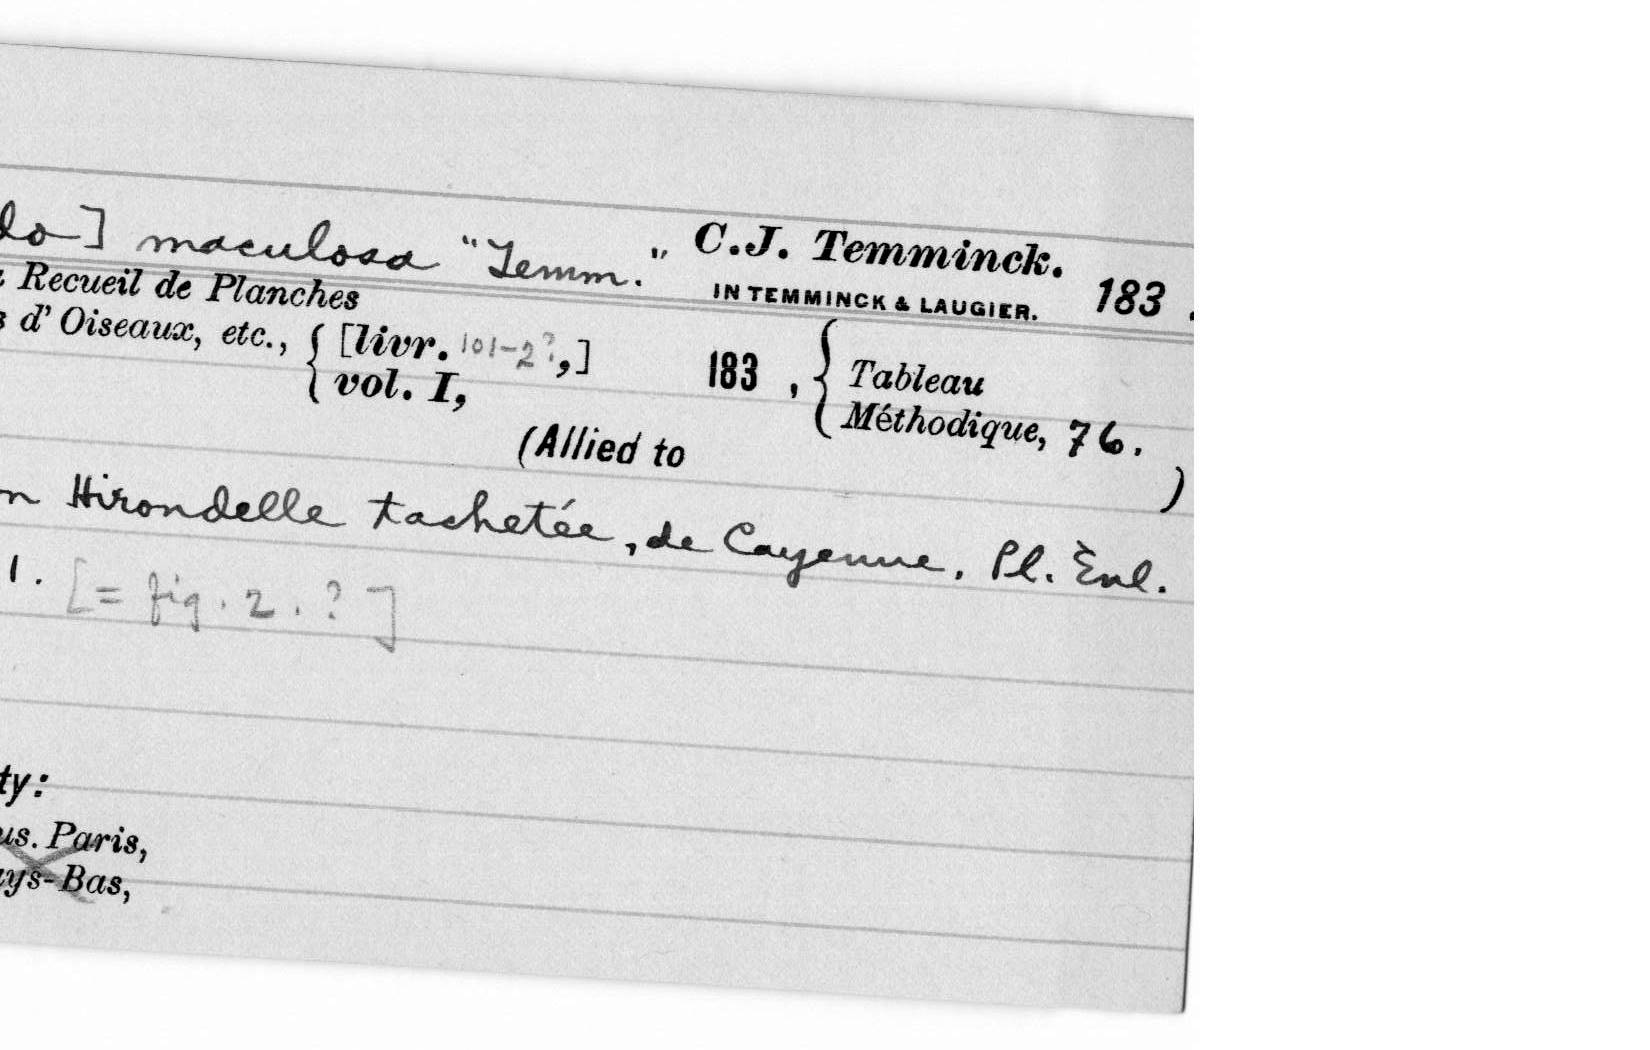 do] maculosa "Temm." C.J. Temminck. 183.
Recueil de Planches IN TEMMINCK & LAUGIER.
d'Oiseaux, etc., { [livr. 101-2?,] 183, { Tableau
vol. I, Méthodique, 76.
(Allied to )
n Hirondelle tachetée, de Cayenne, Pl. Enl.
1. [= fig. 2. ?]
ty:
us. Paris,
ays-Bas,